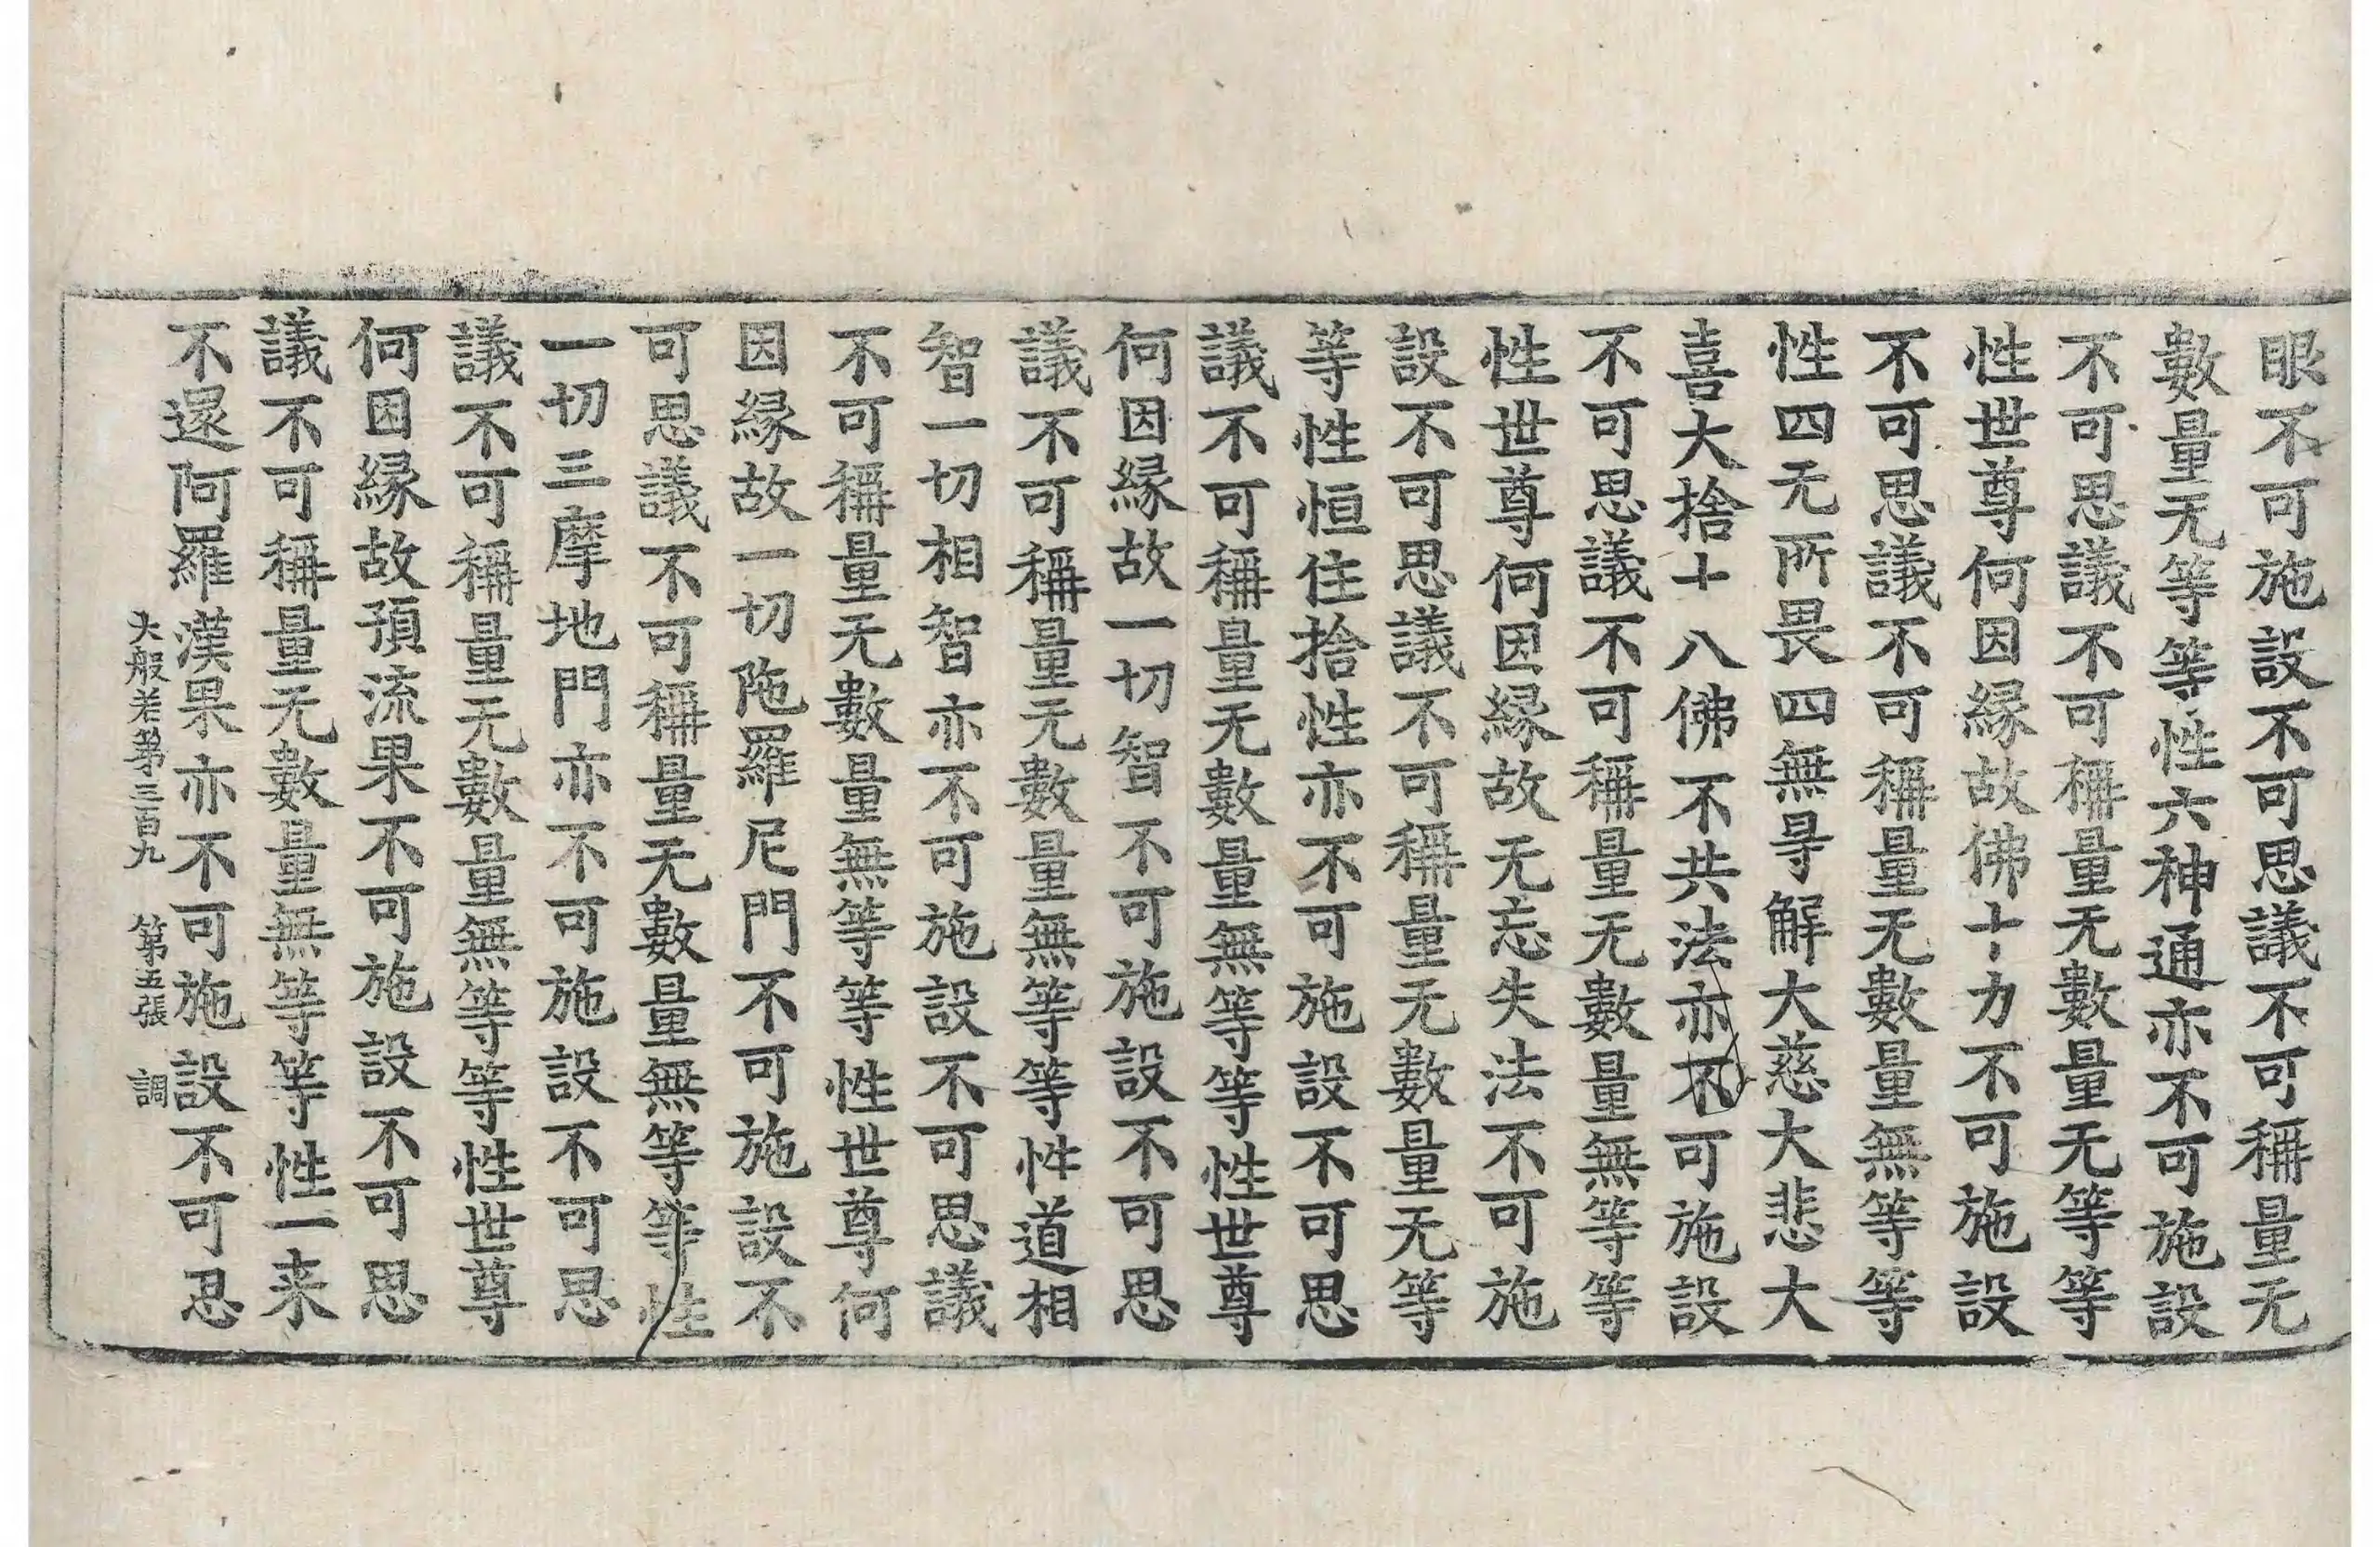 眼不可施設不可思議不可稱量无
數量无等等性六神通亦不可施設
不可思議不可稱量无數量无等等
性世尊何因緣故佛十力不可施設
不可思議不可稱量无數量無等等
性四无所畏四無㝵解大慈大悲大
喜大捨十八佛不共法亦不可施設
不可思議不可稱量无數量無等等
性世尊何因緣故无忘失法不可施
設不可思議不可稱量无數量无等
等性恒住捨性亦不可施設不可思
議不可稱量无數量無等等性世尊
何因緣故一切智不可施設不可思
議不可稱量无數量無等等性道相
智一切相智亦不可施設不可思議
不可稱量无數量無等等性世尊何
因緣故一切陁羅尼門不可施設不
可思議不可稱量无數量無等等性
一切三摩地門亦不可施設不可思
議不可稱量无數量無等等性世尊
何因緣故預流果不可施設不可思
議不可稱量无數量無等等性一来
不還阿羅漢果亦不可施設不可思
大般若第三百九 第五張 調